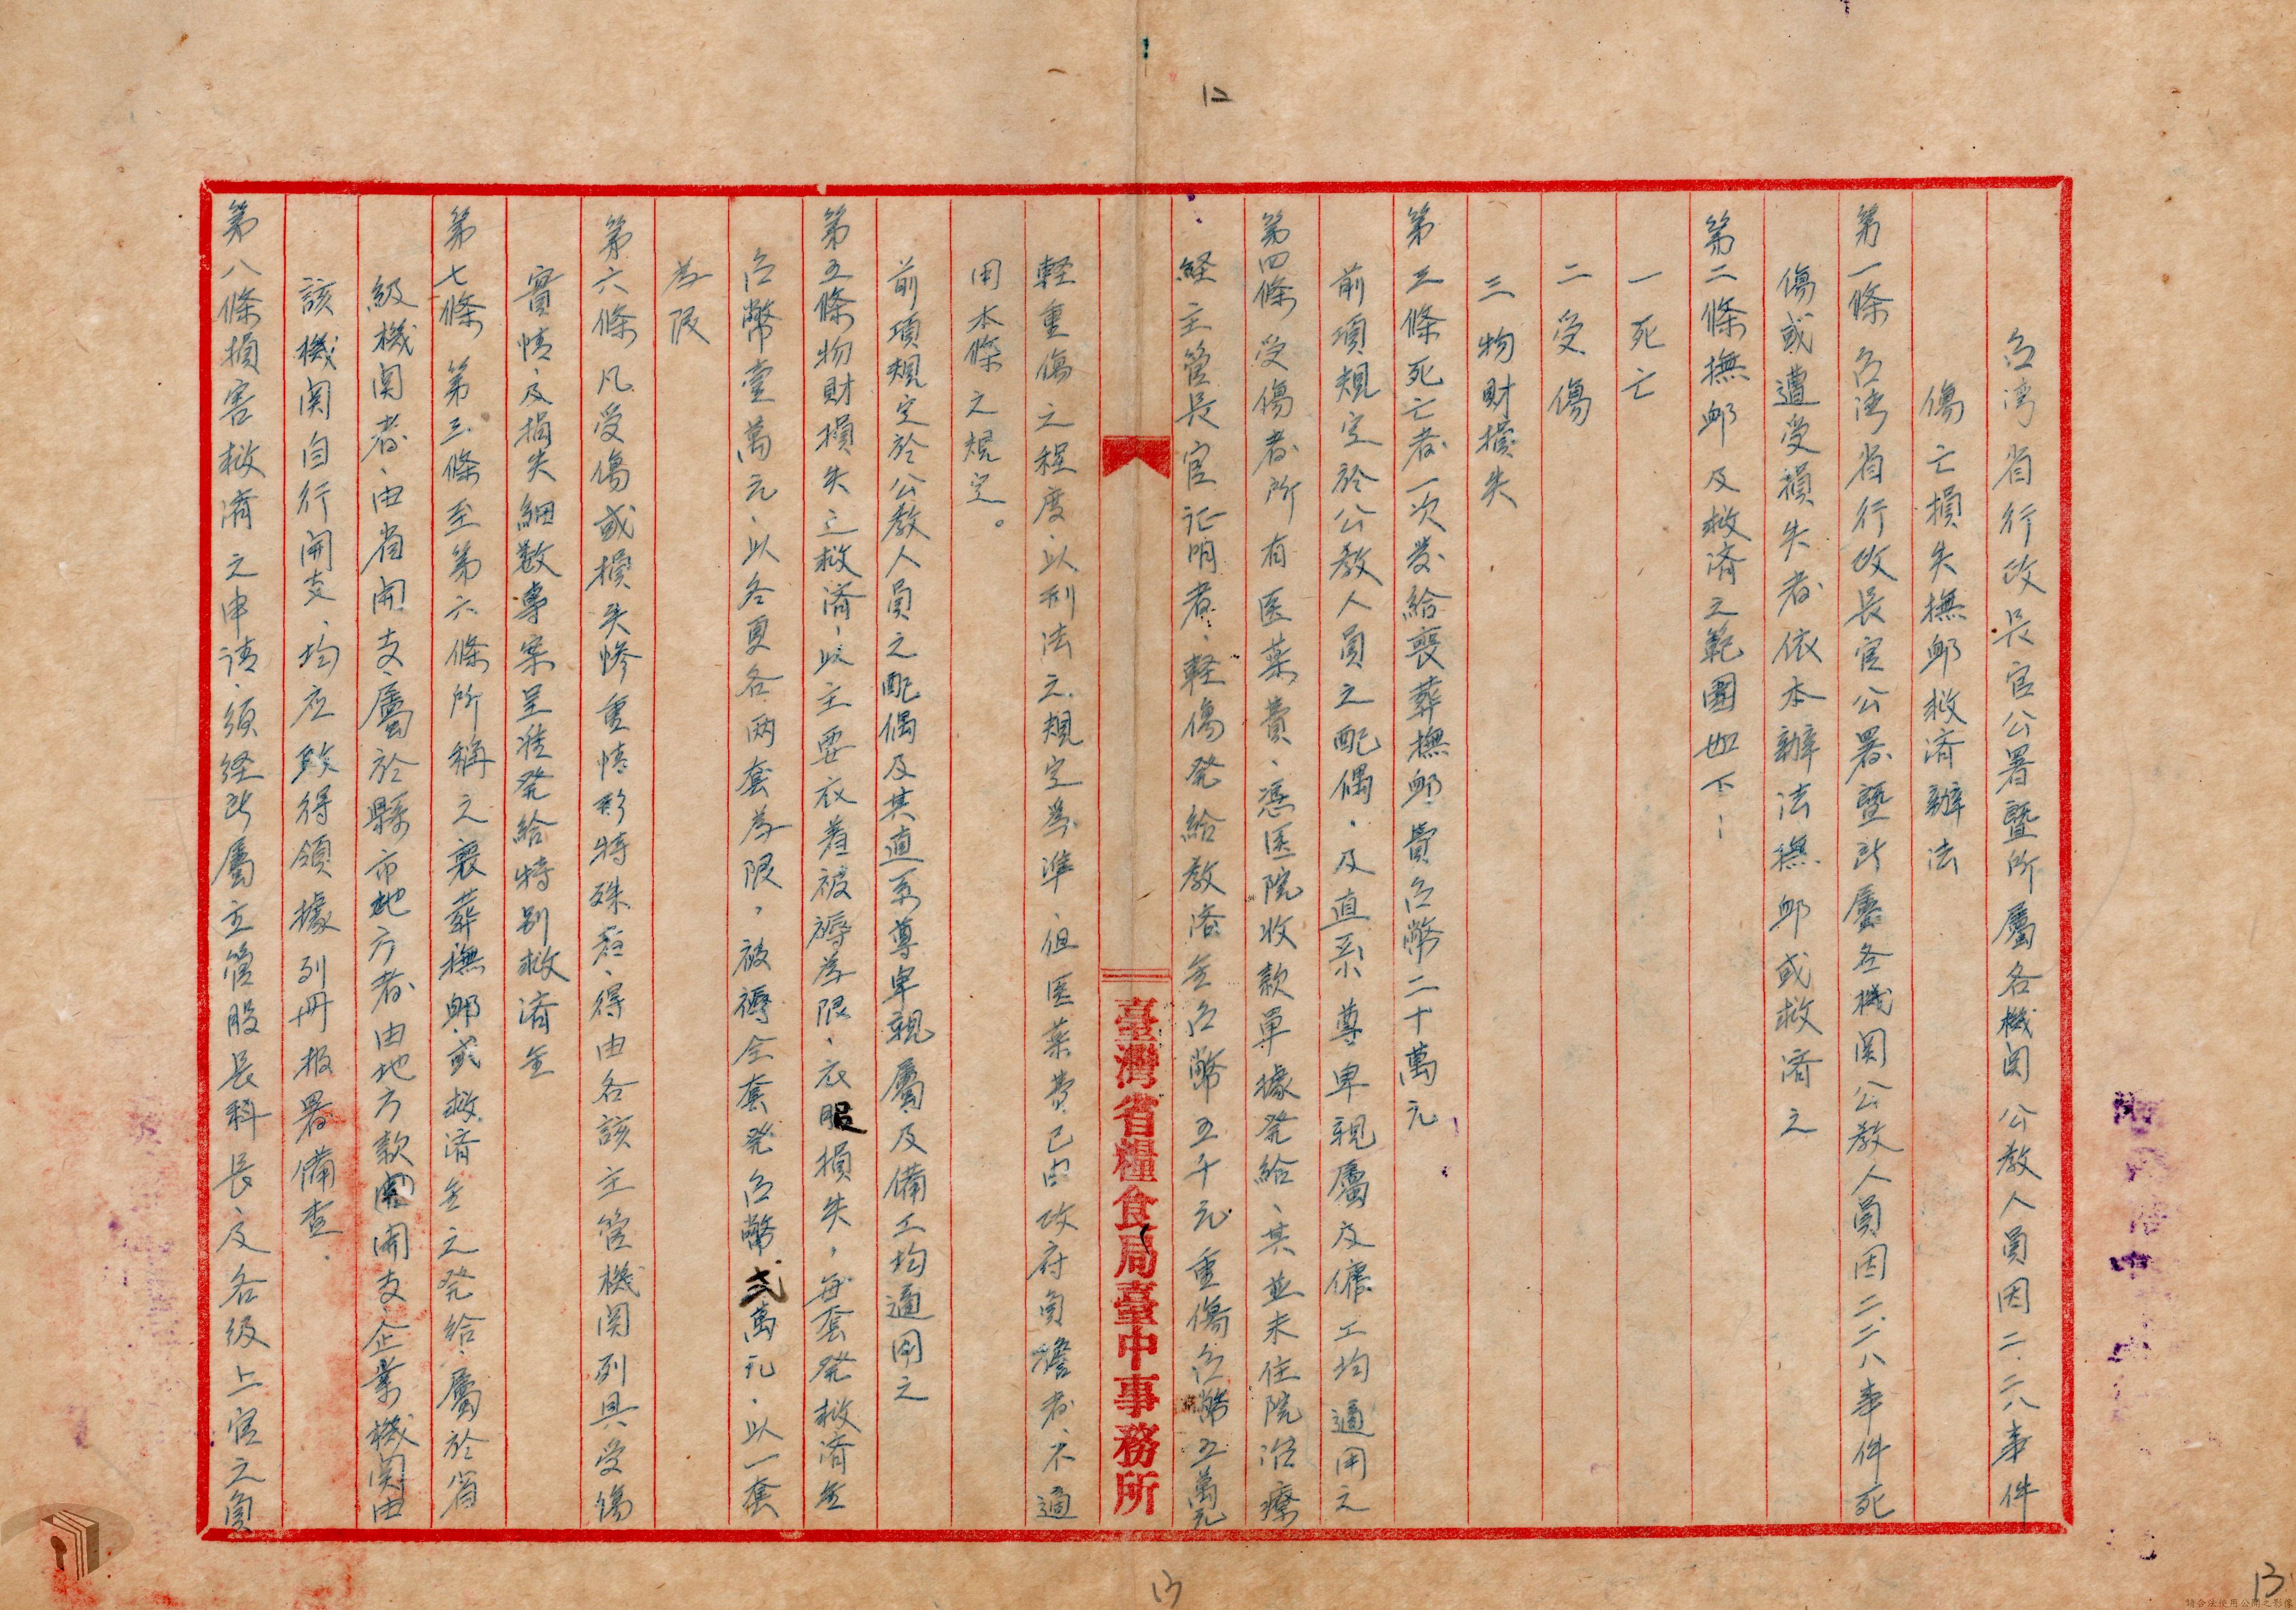 12
台湾省行政長官公署暨所屬各機関公教人員因二.二八事件
傷亡損失撫卹救済辦法
第一條 台湾省行政長官公署暨所屬各機関公教人員因二.二八事件死
傷或遭受損失者依本辦法撫卹或救済之
第二條撫卹及救済之範圍如下:
一死亡
二受傷
三物財損失
第三條死亡者一次發給喪葬撫卹費台幣二十萬元
前項規定於公教人員之配偶、及直系尊卑親屬及傭工均適用之
第四條受傷者所有医薬費、憑医院收款單據発給、其並未住院治療
経主管長官证明者、軽傷発給救济金台幣五千元重傷台幣五萬元
臺灣省糧食局臺中事務所
軽重傷之程度、以刑法之規定為準、但医薬費已由政府負擔者、不適
用本條之規定。
前項規定於公教人員之配偶及其直系尊卑親屬及傭工均適用之
第五條物財損失之救済、以主要衣着被褥為限、衣服損失,每套発救済金
台幣壹萬元、以冬夏各両套為限,被褥全套発台幣弍萬元、以一套
為限
第六條凡受傷或損失慘重情形特殊者、得由各該主管機関列具受傷
實情、及損失細數專案呈准発給特别救済金
第七條 第三條至第六條所稱之喪葬撫卹或救済金之発給、屬於省
級機関者、由省開支、屬於縣市地方者由地方款開支、企業機関由
該機関自行開支、均应取得領據列冊报署備查.
第八條損害救済之申请、須経所屬主管股長科長、及各級上官之負
13
13
請合法使用公開之影像